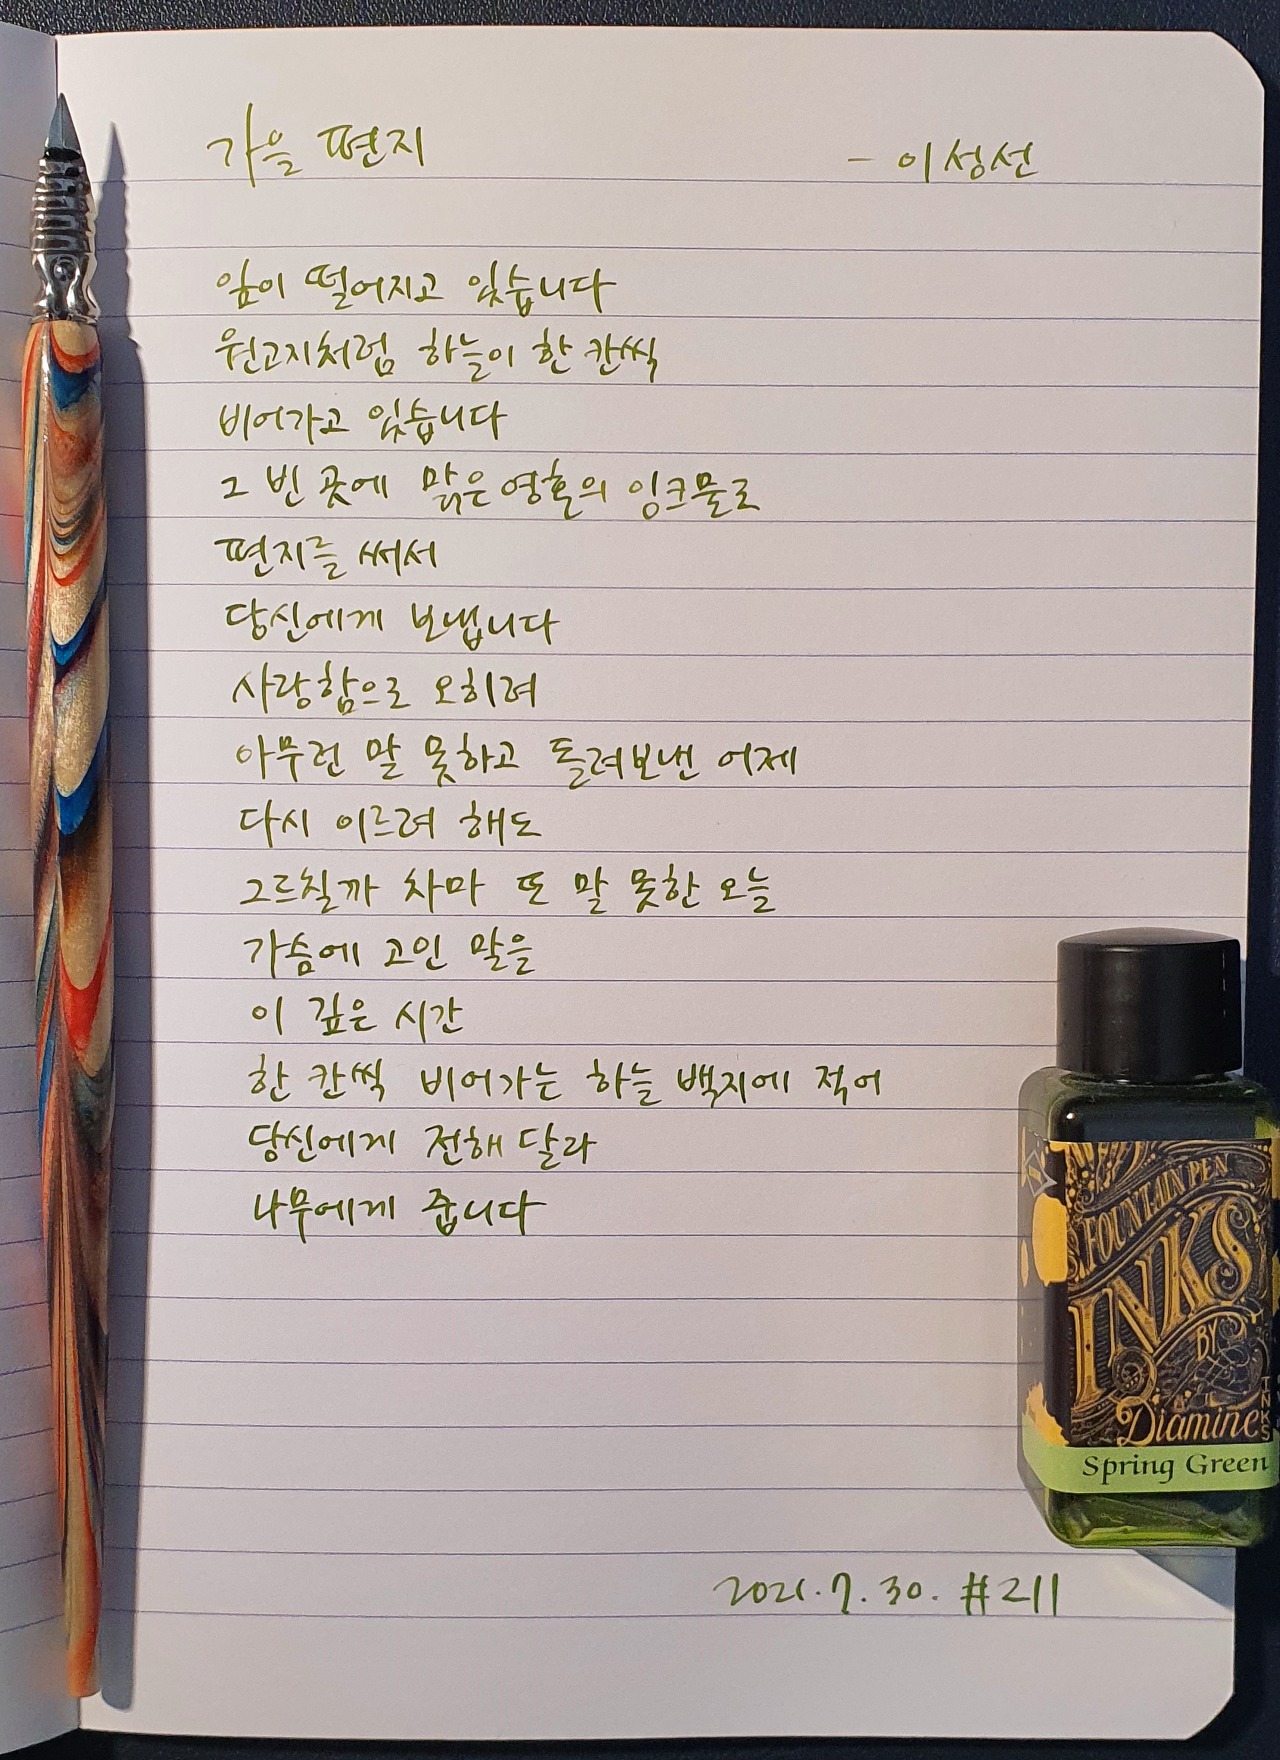 가을 편지 - 이성선
잎이 떨어지고 있습니다
원고지처럼 하늘이 한 칸씩
비어가고 있습니다
그 빈 곳에 맑은 영혼의 잉크물로
편지를 써서
당신에게 보냅니다
사랑함으로 오히려
아무런 말 못하고 돌려보낸 어제
다시 이르려 해도
그르칠까 차마 또 말 못한 오늘
가슴에 고인 말을
이 깊은 시간
한 칸씩 비어가는 하늘 백지에 적어
당신에게 전해 달라
나무에게 줍니다
FOUNTAIN PEN
INKS
BY
Diamine
INKS
Spring Green
2021.7.30. #211